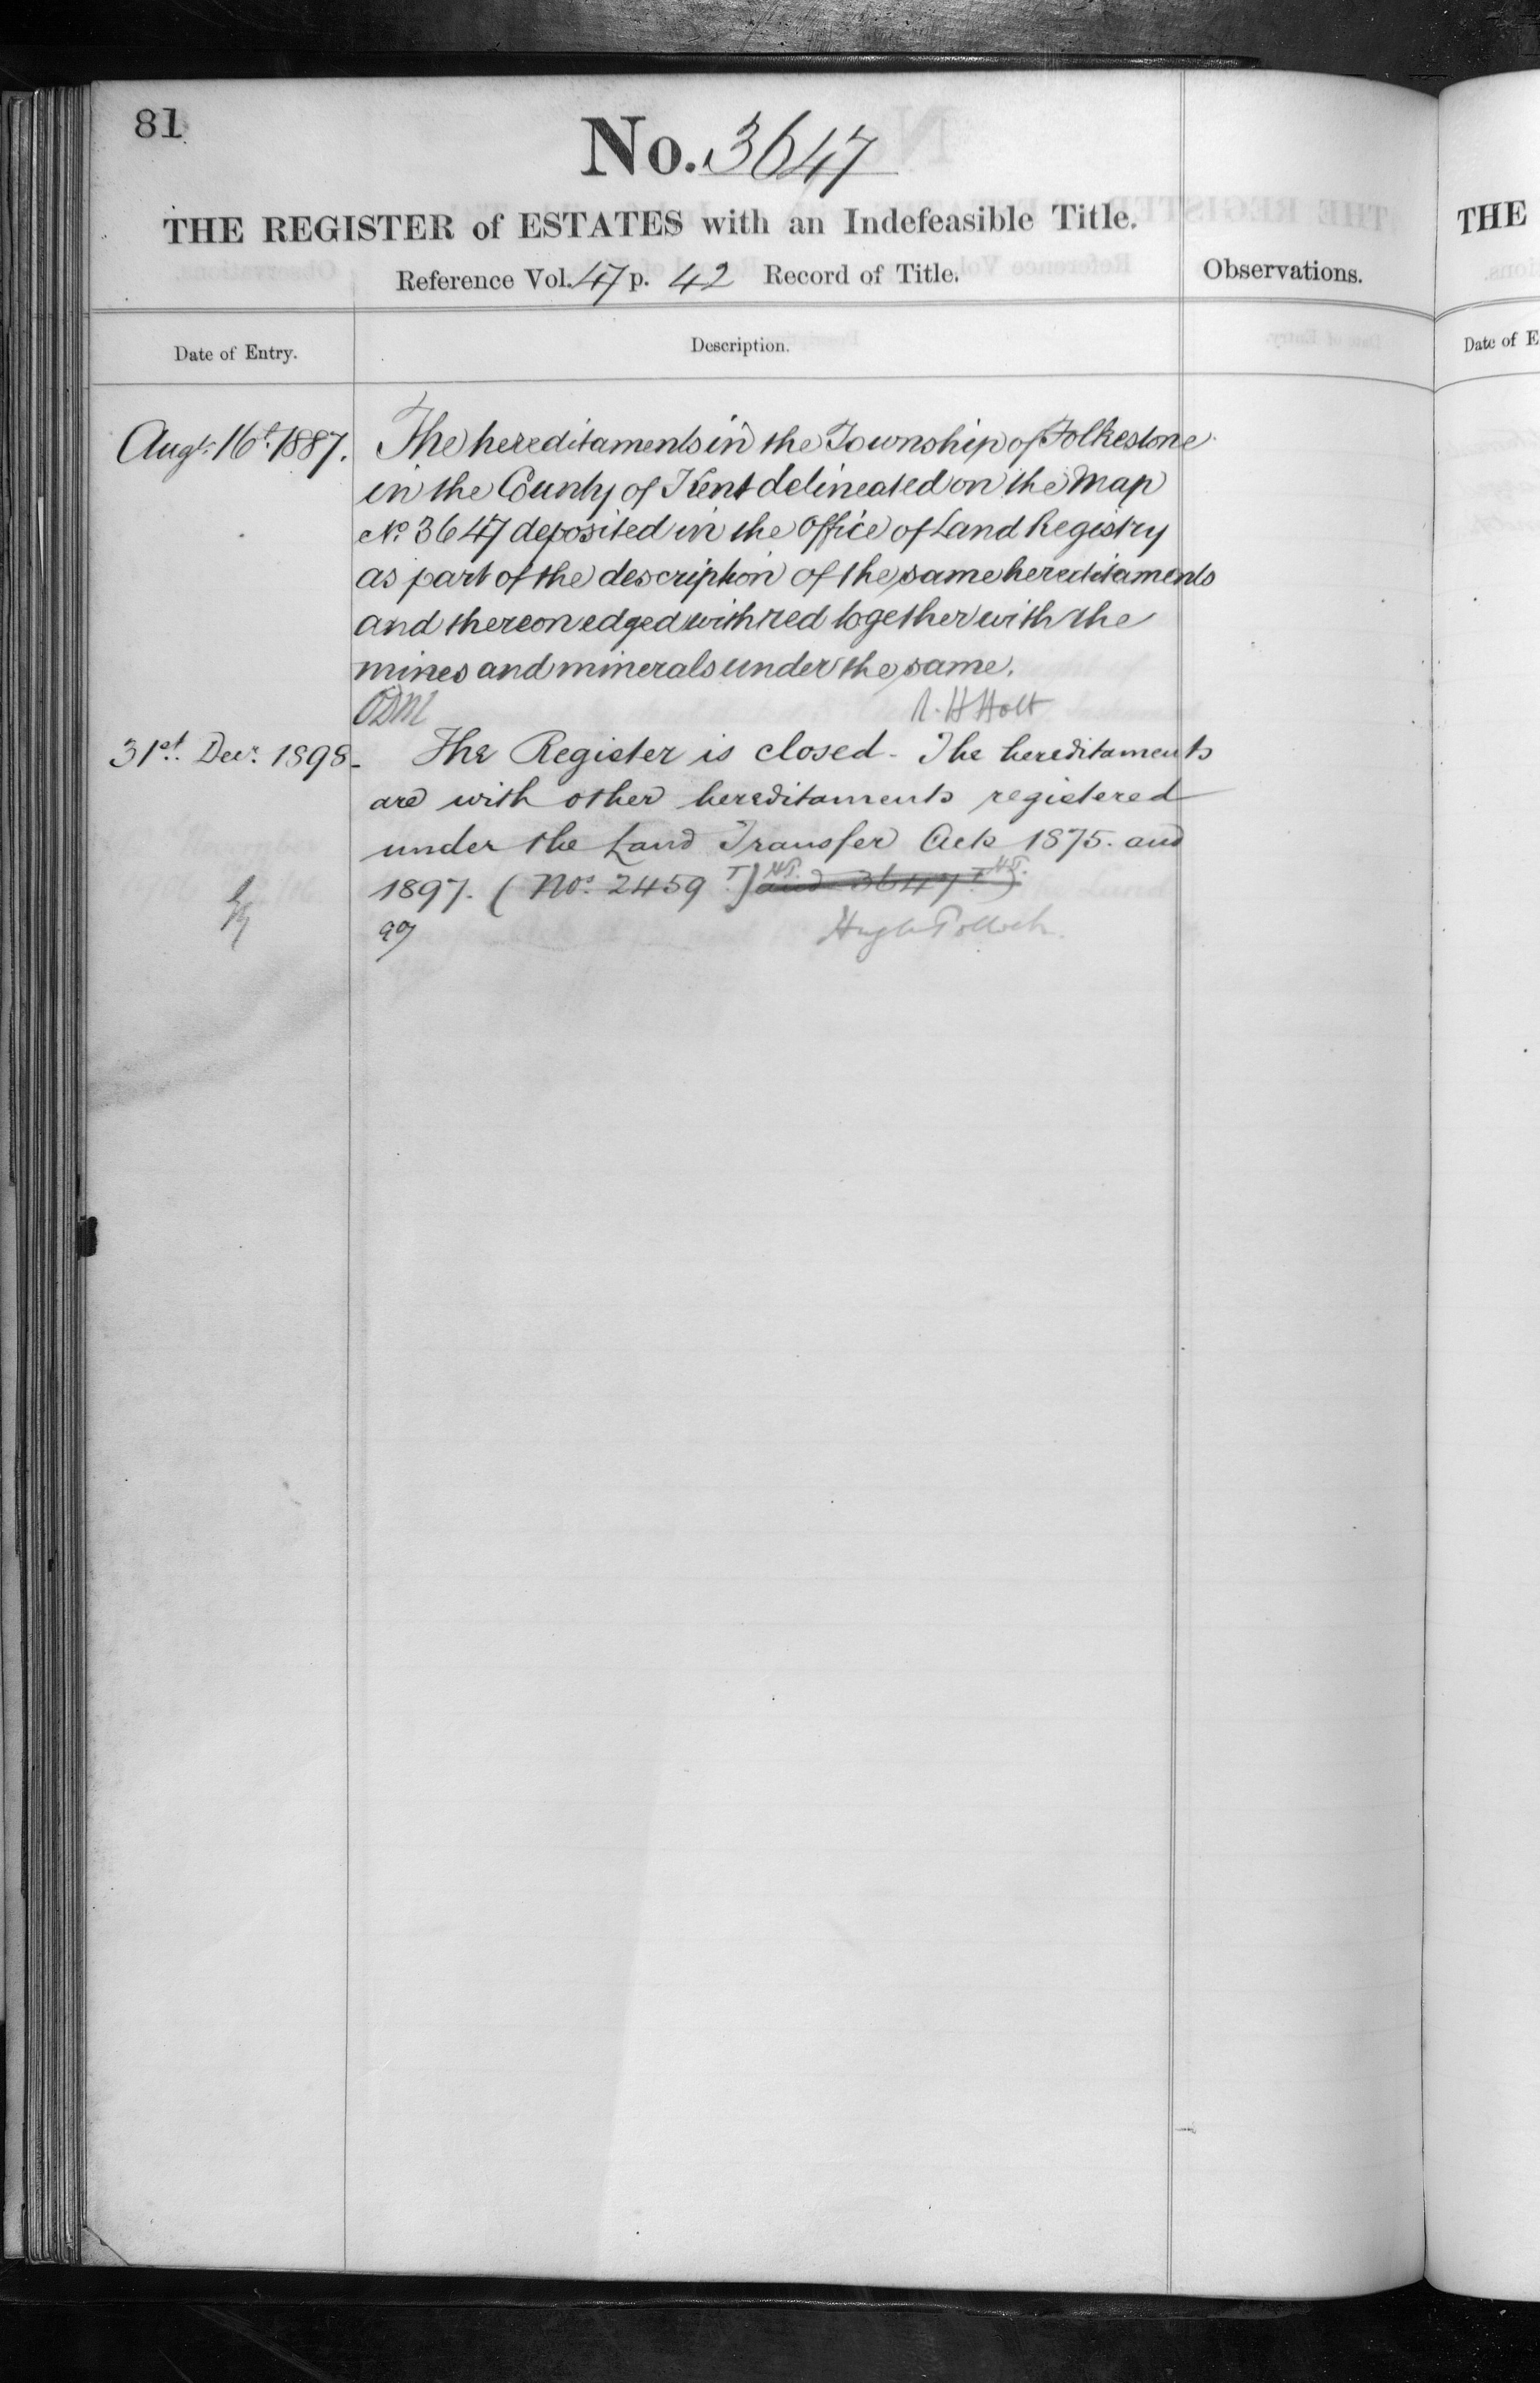 81
No. 3647
THE REGISTER of ESTATES with an Indefeasible Title.
Reference Vol. 47 p. 42 Record of Title.
Observations.
Date of Entry.
Description.
Augt. 16t. 1887. The hereditaments in the Township of Folkestone
in the County of Kent delineated on the Map
No. 3647 deposited in the Office of Land Registry
as part of the description of the same hereditaments
and thereon edged with red together with the
mines and minerals under the same.
ODM R. H Holt
31st. Decr. 1898. The Register is closed - The hereditaments
are with other hereditaments registered
under the Land Transfer Acts 1875. and
1897. (Nos. 2459 T.) H.P. and 3647 T.) H.P.
Hugh Pollock.
THE
Date of E